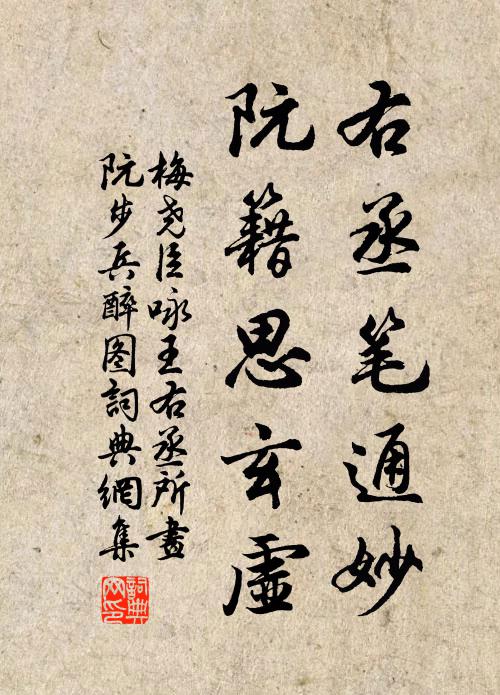 右丞笔通妙
阮籍思玄虚
梅尧臣咏王右丞所畫
阮步兵醉图詞典網集
詞典网印